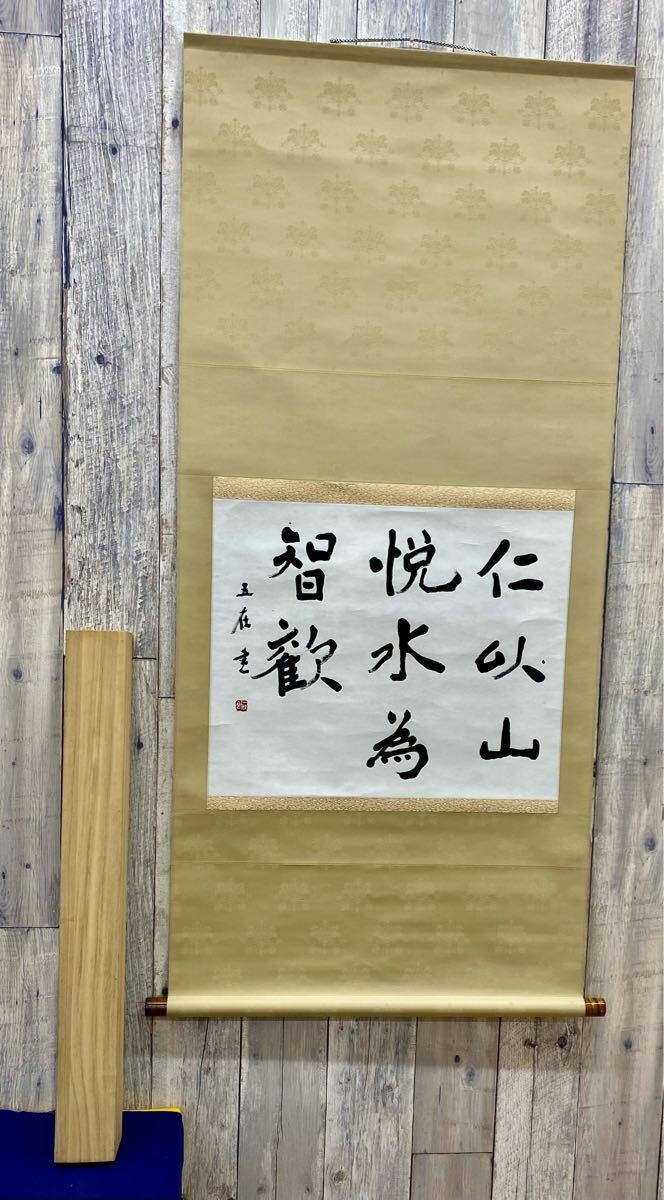 仁以山
悦水為
智歓
五在書